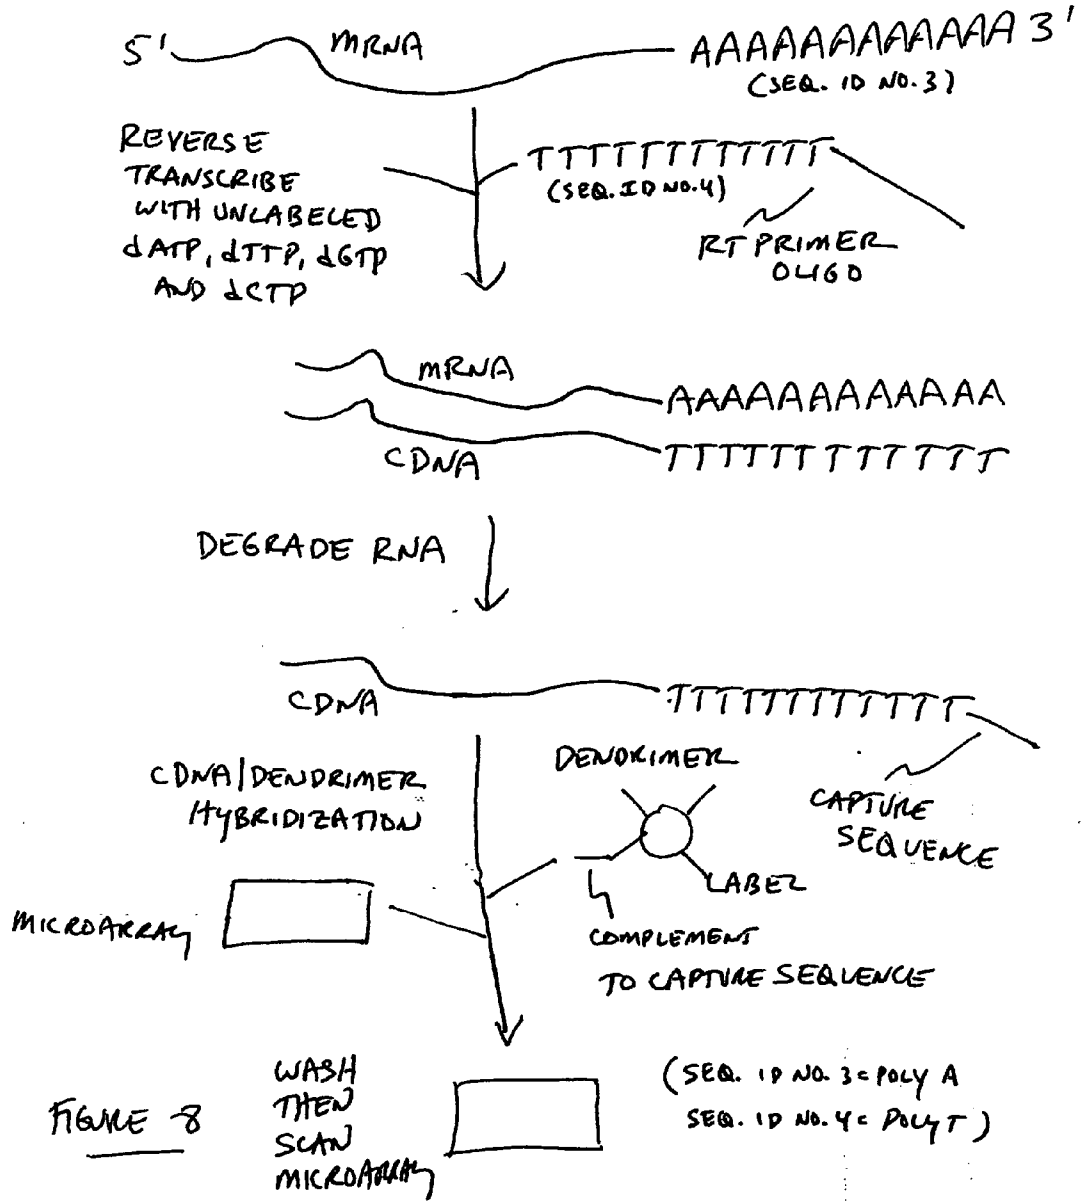 5' MRNA AAAAAAAAAAAA 3'
(SEQ. ID NO. 3)
REVERSE
TRANSCRIBE
WITH UNLABELED
dATP, dTTP, dGTP
AND dCTP
TTTTTTTTTTTT
(SEQ. ID NO. 4)
RT PRIMER
OLIGO
mRNA AAAAAAAAAAAA
CDNA TTTTTTTTTTTT
DEGRADE RNA
CDNA TTTTTTTTTTTT
CDNA/DENDRIMER
HYBRIDIZATION
DENDRIMER
CAPTURE
SEQUENCE
LABEL
MICROARRAY
COMPLEMENT
TO CAPTURE SEQUENCE
WASH
THEN
SCAN
MICROARRAY
(SEQ. ID NO. 3 = POLY A
SEQ. ID NO. 4 = POLY T)
FIGURE 8